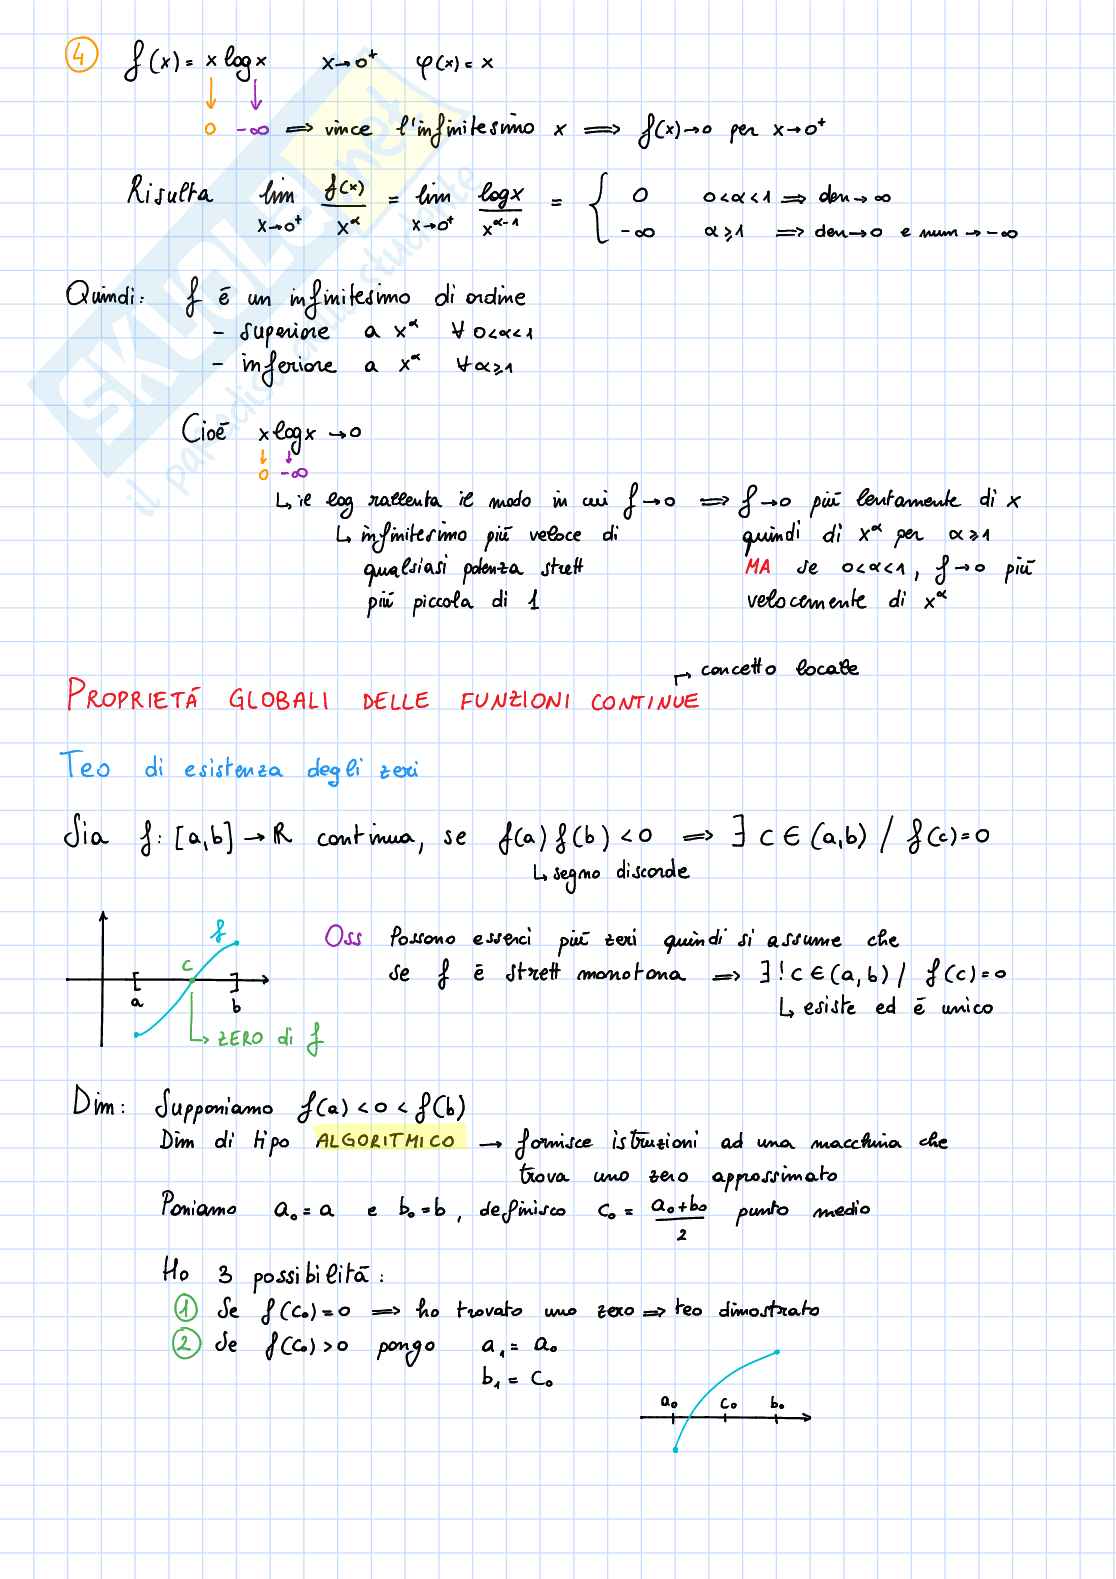 4 f(x) = x log x   x→0⁺   φ(x) = x
0 -∞ ⟹ vince l'infinitesimo x ⟹ f(x)→0 per x→0⁺
Risulta lim x→0⁺ f(x)/x^α = lim x→0⁺ log x/x^(α-1) = { 0   0<α<1 ⟹ den→∞
-∞   α⩾1 ⟹ den→0 e num→-∞
Quindi: f ē un infinitesimo di ordine
- superiore a x^α ∀ 0<α<1
- inferiore a x^α ∀α⩾1
Cioē x log x →0
0 -∞
↳ il log rallenta il modo in cui f→0 ⟹ f→0 piū lentamente di x
↳ infinitesimo piū veloce di
quindi di x^α per α⩾1
qualsiasi potenza strett
MA se 0<α<1, f→0 piū
piū piccola di 1
velocemente di x^α
concetto locale
PROPRIETÁ GLOBALI DELLE FUNZIONI CONTINUE
Teo di esistenza degli zeri
Sia f: [a,b] → ℝ continua, se f(a) f(b) <0 ⟹ ∃ c ∈ (a,b) / f(c)=0
↳ segno discorde
f
c
a
b
↳ ZERO di f
Oss Possono esserci piū zeri quindi si assume che
se f ē strett monotona ⟹ ∃! c ∈ (a,b) / f(c)=0
↳ esiste ed ē unico
Dim: Supponiamo f(a) <0 < f(b)
Dim di tipo ALGORITMICO → fornisce istruzioni ad una macchina che
trova uno zero approssimato
Poniamo a₀ = a e b₀ = b, definisco c₀ = (a₀+b₀)/2 punto medio
Ho 3 possibilitā:
1 Se f(c₀) = 0 ⟹ ho trovato uno zero ⟹ teo dimostrato
2 Se f(c₀) > 0 pongo a₁ = a₀
b₁ = c₀
a₀ c₀ b₀
SKUOLA.net
il paradiso dello studente